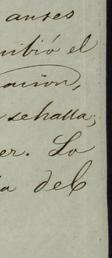 antes
cibió el
ación,
se halla;
er. Lo
a del